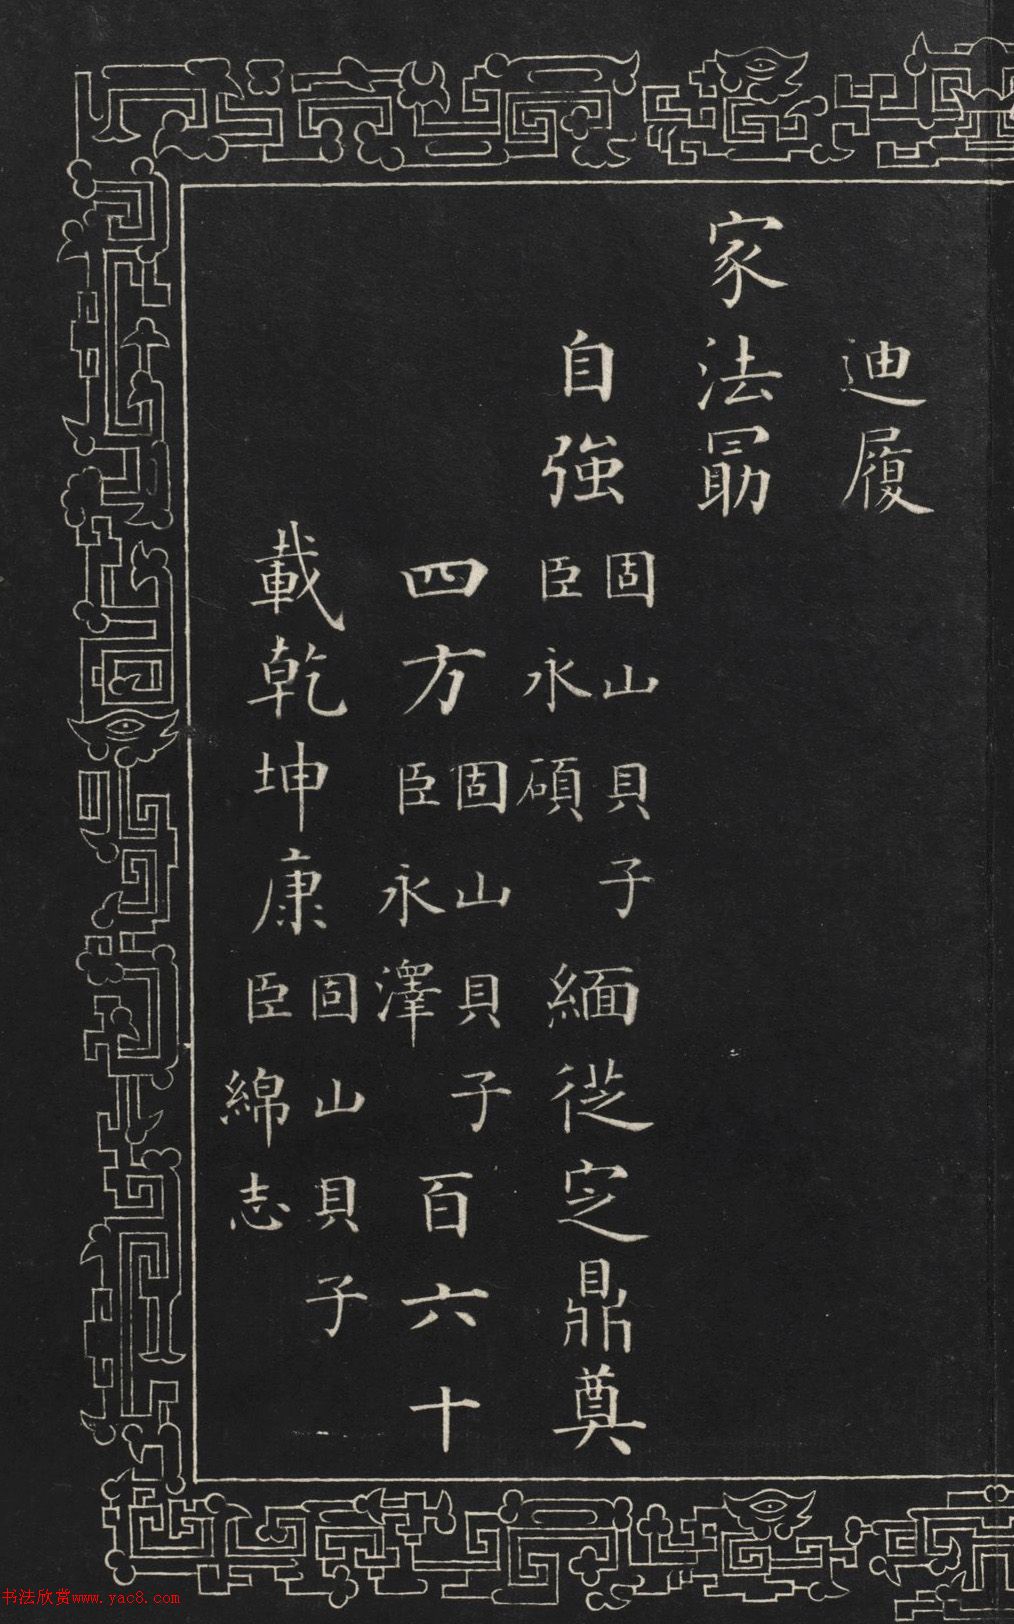 迪履
家法勖
自強固山貝子臣永碩緬從定鼎奠
四方固山貝子臣永澤百六十
載乾坤康固山貝子臣綿志
书法欣赏www.yac8.com